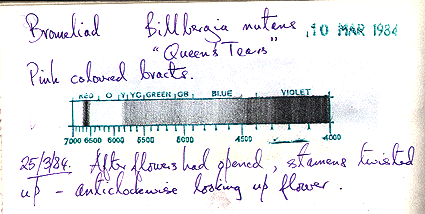 Bromeliad Billbergia nutans, 10 MAR 1984
"Queen's Tears"
Pink coloured bracts.
RED O Y YG GREEN GB BLUE VIOLET
7000 6500 6000 5500 5000 4500 4000
25/3/84. After flowers had opened, stamens twisted
up - anticlockwise looking up flower.